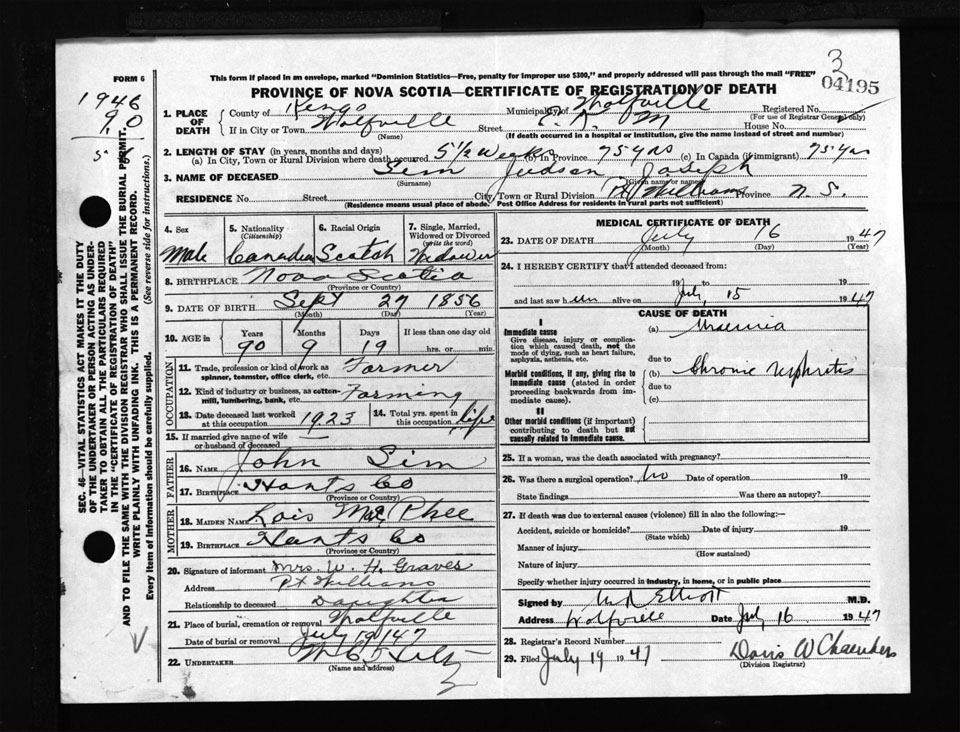 3
FORM 6
This form if placed in an envelope, marked "Dominion Statistics—Free, penalty for improper use $300," and properly addressed will pass through the mail "FREE"
04195
PROVINCE OF NOVA SCOTIA—CERTIFICATE OF REGISTRATION OF DEATH
1946
90
5
SEC. 46—VITAL STATISTICS ACT MAKES IT THE DUTY
OF THE UNDERTAKER OR PERSON ACTING AS UNDER-
TAKER TO OBTAIN ALL THE PARTICULARS REQUIRED
IN THE "CERTIFICATE OF REGISTRATION OF DEATH"
AND TO FILE THE SAME WITH THE DIVISION REGISTRAR WHO SHALL ISSUE THE BURIAL PERMIT.
WRITE PLAINLY WITH UNFADING INK. THIS IS A PERMANENT RECORD.
Every item of Information should be carefully supplied. (See reverse side for instructions.)
1. PLACE OF DEATH County of Kings Municipality of Wolfville Registered No.
(For use of Registrar General only)
If in City or Town Wolfville Street House No.
(Name) (If death occurred in a hospital or institution, give the name instead of street and number)
2. LENGTH OF STAY (in years, months and days)
(a) In City, Town or Rural Division where death occurred 5 1/2 Weeks (b) In Province 75 yrs (c) In Canada (if immigrant) 75 yrs
3. NAME OF DECEASED Sim Judson Joseph
(Surname) (Given name or names)
RESIDENCE No. Street City, Town or Rural Division Pt Williams Province N. S.
(Residence means usual place of abode. Post Office Address for residents in rural parts not sufficient)
4. Sex Male
5. Nationality (Citizenship) Canadian
6. Racial Origin Scotch
7. Single, Married, Widowed or Divorced (write the word) Widower
8. BIRTHPLACE Nova Scotia
(Province or Country)
9. DATE OF BIRTH Sept 27 1856
(Month) (Day) (Year)
10. AGE in Years Months Days If less than one day old
90 9 19 hrs. or min.
OCCUPATION
11. Trade, profession or kind of work as spinner, teamster, office clerk, etc. Farmer
12. Kind of industry or business, as cotten-mill, lumbering, bank, etc. Farming
13. Date deceased last worked at this occupation 1923
14. Total yrs. spent in this occupation Life
15. If married give name of wife or husband of deceased —
FATHER
16. NAME John Sim
17. BIRTHPLACE Hants Co
(Province or Country)
MOTHER
18. MAIDEN NAME Lois Mac Phee
19. BIRTHPLACE Hants Co
(Province or Country)
20. Signature of informant Mrs. W. H. Graves
Address Pt Williams
Relationship to deceased Daughter
21. Place of burial, cremation or removal Wolfville
Date of burial or removal July 19 1947
22. UNDERTAKER
(Name and address)
MEDICAL CERTIFICATE OF DEATH
23. DATE OF DEATH July 16 1947
(Month) (Day) (Year)
24. I HEREBY CERTIFY that I attended deceased from:
19 to July, 15
and last saw him alive on 1947
CAUSE OF DEATH
I
Immediate cause
Give disease, injury or complication which caused death, not the mode of dying, such as heart failure, asphyxia, asthenia, etc.
(a) Uraemia
due to
Morbid conditions, if any, giving rise to immediate cause (stated in order proceeding backwards from immediate cause).
(b) Chronic nephritis
due to
(c)
II
Other morbid conditions (if important) contributing to death but not causally related to immediate cause.
25. If a woman, was the death associated with pregnancy?
26. Was there a surgical operation? No Date of operation 19
State findings Was there an autopsy?
27. If death was due to external causes (violence) fill in also the following:—
Accident, suicide or homicide? Date of injury 19
(State which)
Manner of injury
(How sustained)
Nature of injury
Specify whether injury occurred in industry, in home, or in public place
Signed by Elliott M.D.
Address Wolfville Date July 16 1947
28. Registrar's Record Number
29. Filed July 19 1947
(Division Registrar)